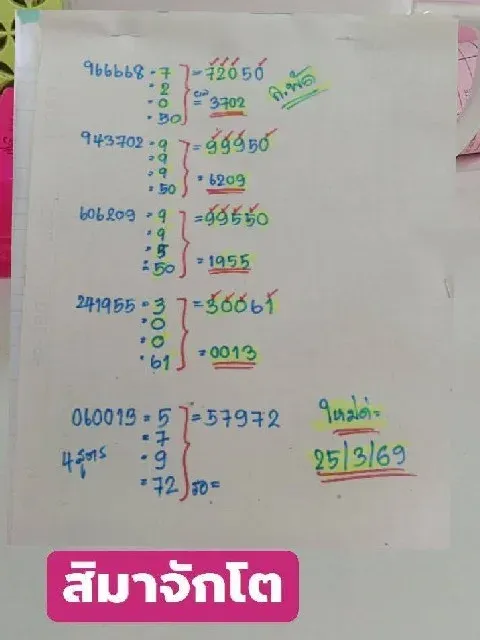 966668 = 7 = 72050
= 2
= 0 = 3702
= 50
943702 = 9 = 99950
= 9
= 9
= 50 = 6209
606209 = 9 = 99550
= 9
= 5
= 50 = 1955
241955 = 3 = 30061
= 0
= 0
= 61 = 0013
060013 = 5 = 57972
= 7
4 สูตร = 9
= 72 รอ =
25/3/69
สิมาจักโต